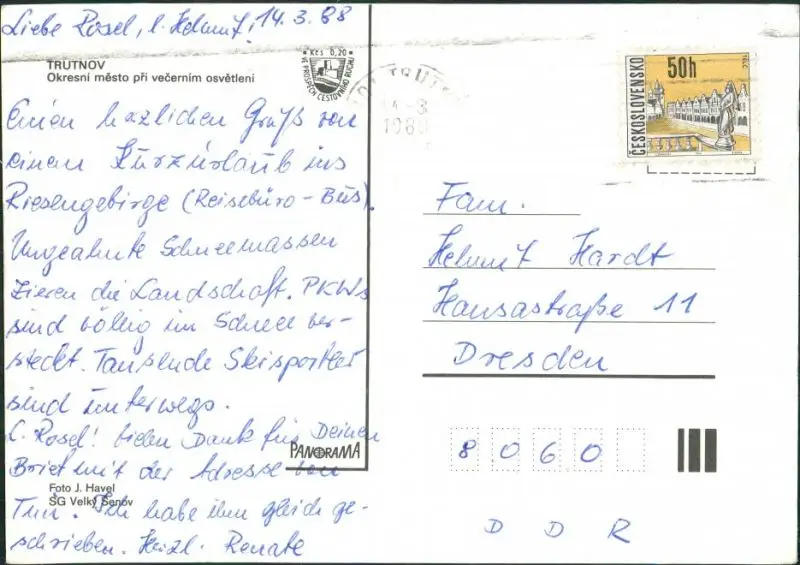 Liebe Rosel, l. Helmut, 14.3.88
TRUTNOV
Okresní město při večerním osvětlení
Kčs 0,20
VE PROSPĚCH CESTOVNÍHO RUCHU
Einen herzlichen Gruß von
einem Kurzurlaub ins
Riesengebirge (Reisebüro - Bus).
Ungeahnte Schneemassen
zieren die Landschaft. PKWs
sind völlig im Schnee ver-
steckt. Tausende Skisportler
sind unterwegs.
L. Rosel! Vielen Dank für Deinen
Brief mit der Adresse von
Ich habe ihm gleich ge-
schrieben. Herzl. Renate
PANORAMA
Foto J. Havel
SG Velký Šenov
ČESKOSLOVENSKO
50h
TELČ
Fam.
Helmut Hardt
Hansastraße 11
Dresden
8060
DDR